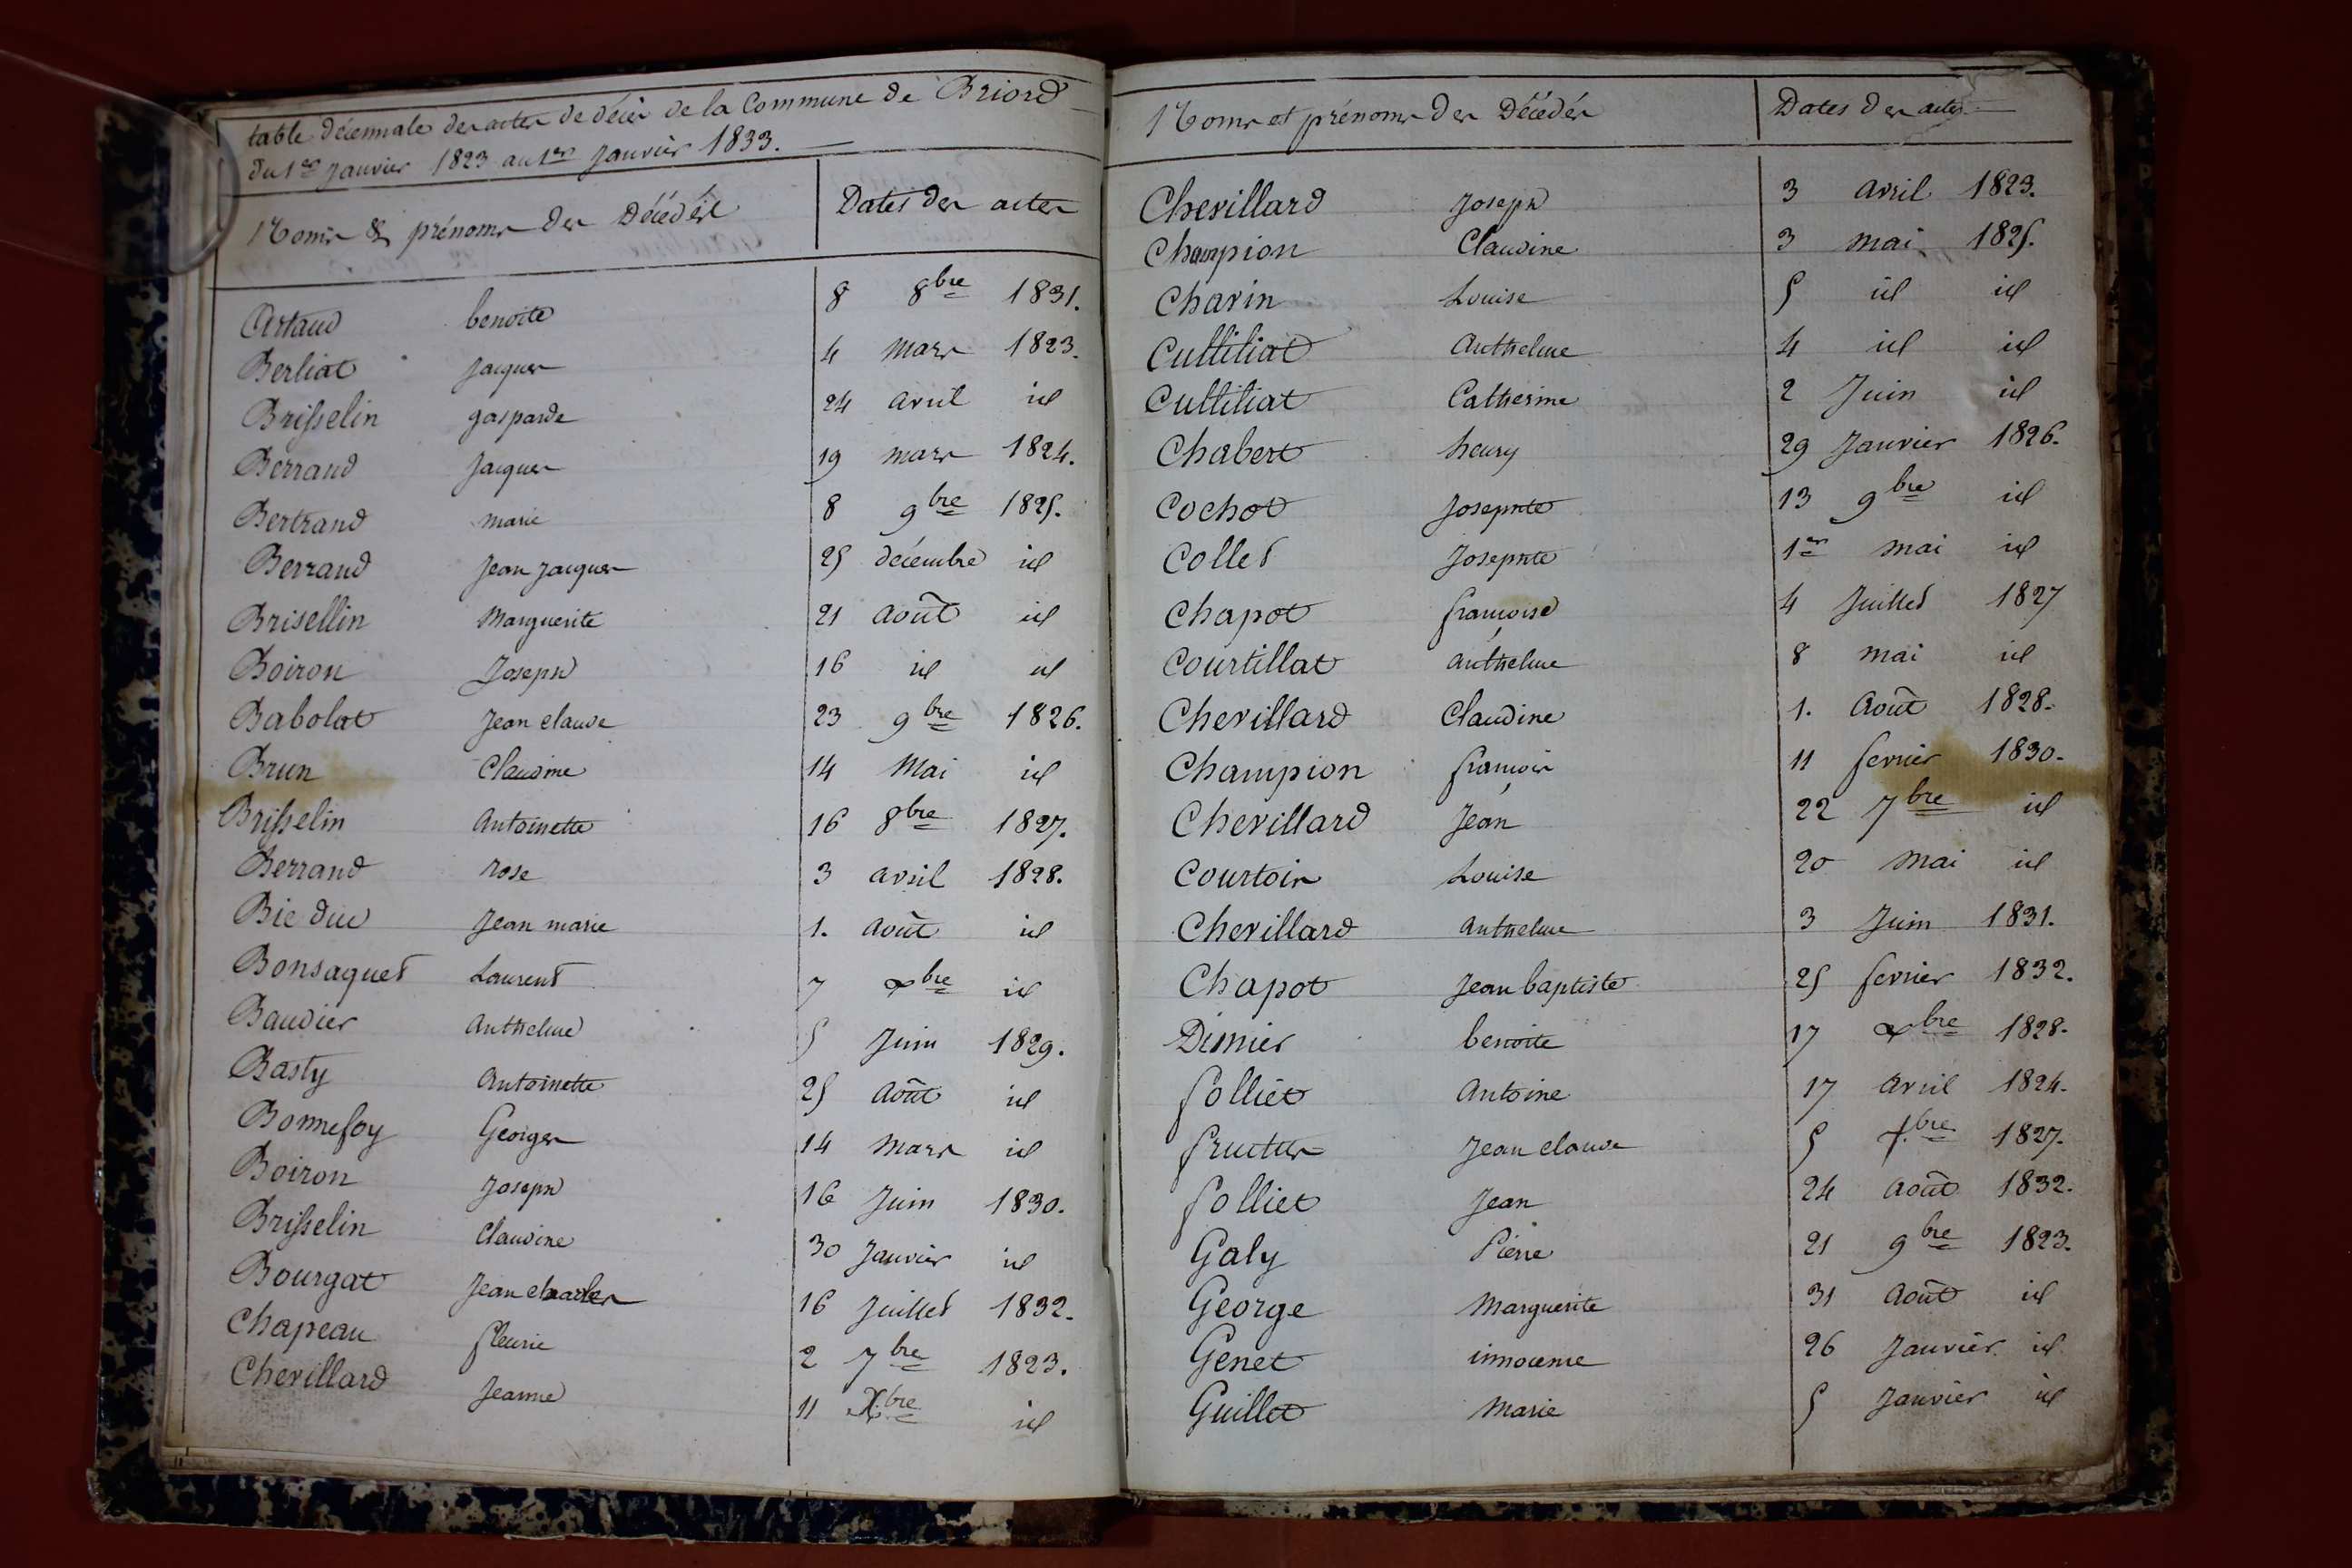 table décennale des actes de décès de la Commune de Briord
du 1er Janvier 1823 au 1er Janvier 1833.
Noms & prénoms des Décédés Dates des actes
Artaud benoite 8 8bre 1831.
Berliat Jacques 4 Mars 1823.
Brisselin gasparde 24 avril id
Berrand Jacques 19 mars 1824.
Bertrand marie 8 9bre 1825.
Berrand Jean Jacques 25 décembre id
Brisellin Marguerite 21 août id
Boiron Joseph 16 id id
Babolat Jean claude 23 9bre 1826.
Brun Claudine 14 Mai id
Brisselin Antoinette 16 8bre 1827.
Berrand rose 3 avril 1828.
Bie duc Jean marie 1. Août id
Bonsaquet Laurent 7 xbre id
Baudier Anthelme 5 Juin 1829.
Basty Antoinette 25 Août id
Bonnefoy Georges 14 Mars id
Boiron Joseph 16 Juin 1830.
Brisselin Claudine 30 Janvier id
Bourgat Jean charles 16 Juillet 1832.
Chapeau fleurie 2 7bre 1823.
Chevillard Jeanne 11 Xbre id
Noms et prénoms des Décédés Dates des actes
Chevillard Joseph 3 avril 1823.
Champion Claudine 3 mai 1825.
Charin Louise 5 id id
Cultiliat Anthelme 4 id id
Cultiliat Catherine 2 Juin id
Chabert henry 29 Janvier 1826.
Cochot Josephte 13 9bre id
Collet Josephte 1er mai id
Chapot françoise 4 Juillet 1827
Courtillat Anthelme 8 mai id
Chevillard Claudine 1. Août 1828.
Champion françois 11 fevrier 1830.
Chevillard Jean 22 7bre id
Courtois Louise 20 Mai id
Chevillard Anthelme 3 Juin 1831.
Chapot Jean baptiste 25 fevrier 1832.
Dimier benoite 17 xbre 1828.
folliet Antoine 17 Avril 1824.
fructus Jean claude 5 7bre 1827.
folliet Jean 24 Août 1832.
Galy Pierre 21 9bre 1823.
George Marguerite 31 Août id
Genet innocente 26 Janvier id
Guillet Marie 5 Janvier id